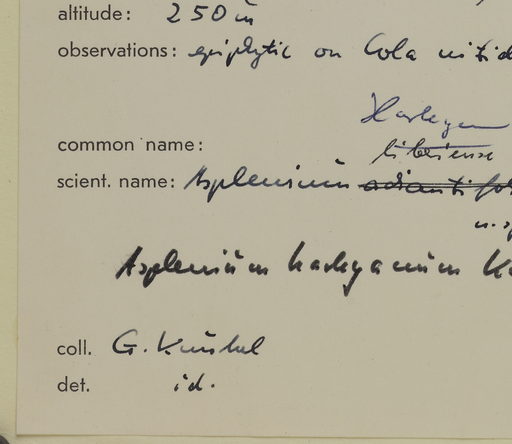 altitude: 250 m
observations: epiphytic on Cola nitid
Harleyan
common name:
liberiense
scient. name: Asplenium adianti fol
n. sp
Asplenium harleyanum K
coll. G. Kunkel
det. id.